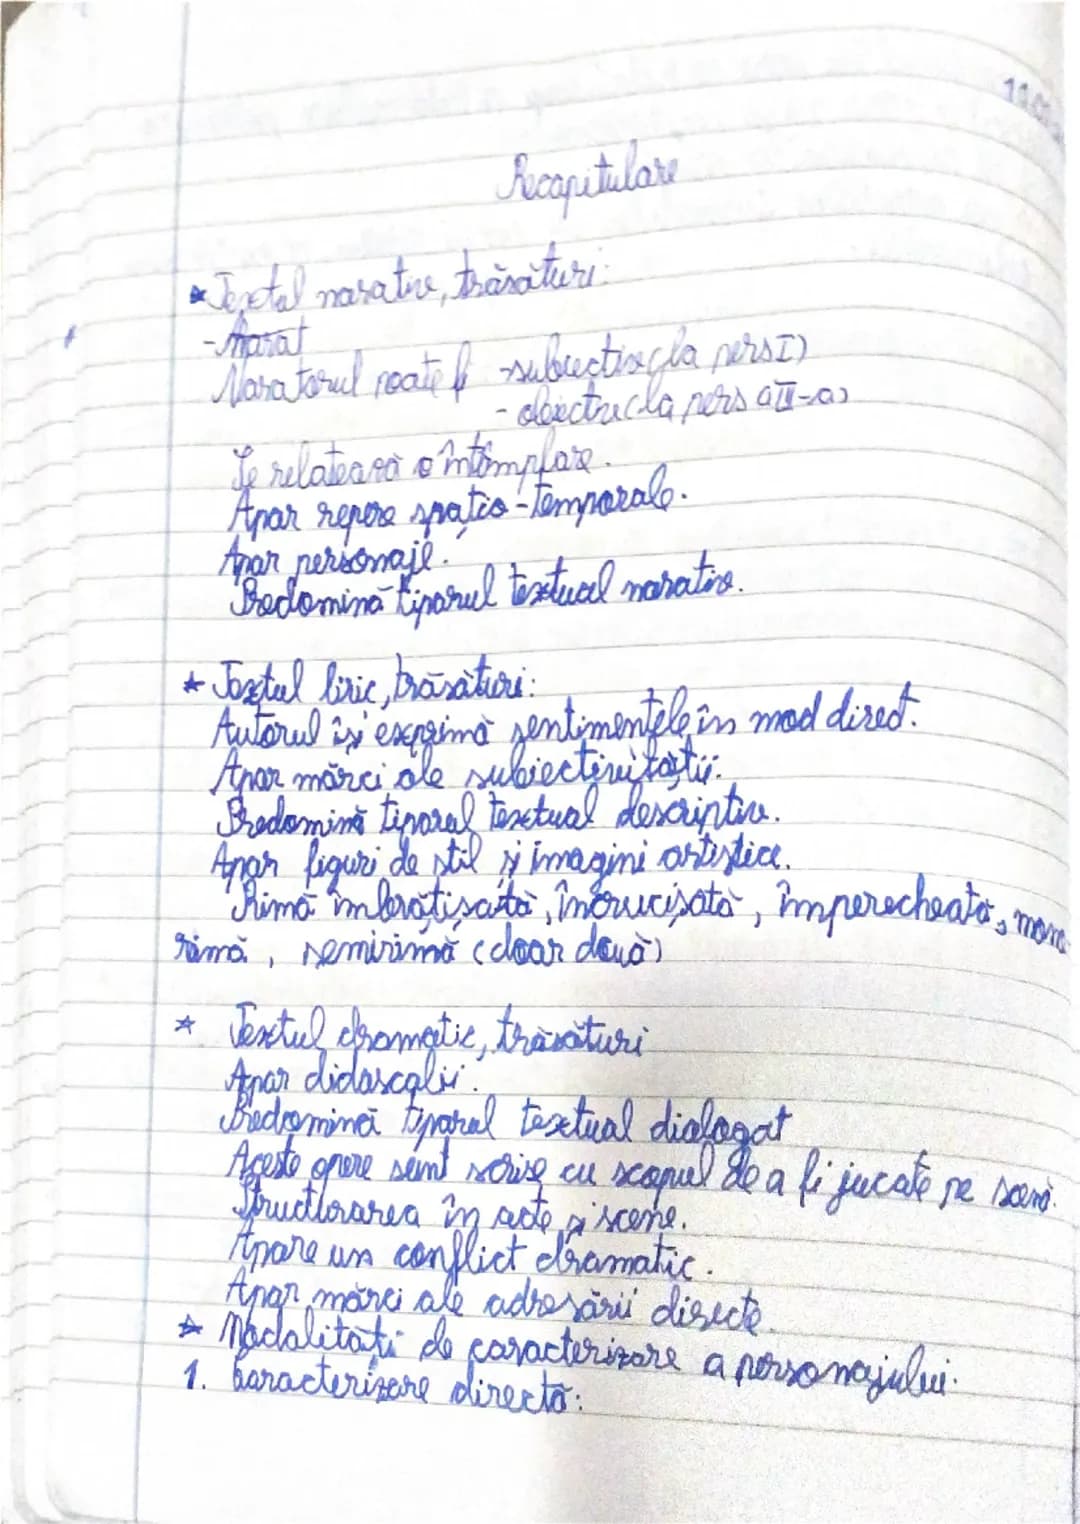 Recapitulare
* Textul narativ, trăsături:
- Narat
Naratorul poate fi - subiectiv (la pers I)
- obiectiv (la pers a III-a)
Se relatează o întâmplare.
Apar repere spațio-temporale.
Apar personaje.
Predomină tiparul textual narativ.
* Textul liric, trăsături:
Autorul își exprimă sentimentele în mod direct.
Apar mărci ale subiectivității.
Predomină tiparul textual descriptiv.
Apar figuri de stil și imagini artistice.
Rimă îmbrățișată, încrucișată, împerecheată, mono
rimă, semirimă (doar două)
* Textul dramatic, trăsături
Apar didascalii.
Predomină tiparul textual dialogat
Aceste opere sunt scrise cu scopul de a fi jucate pe scenă.
Structurarea în acte și scene.
Apare un conflict dramatic.
Apar mărci ale adresării directe.
* Modalități de caracterizare a personajului:
1. Caracterizare directă: